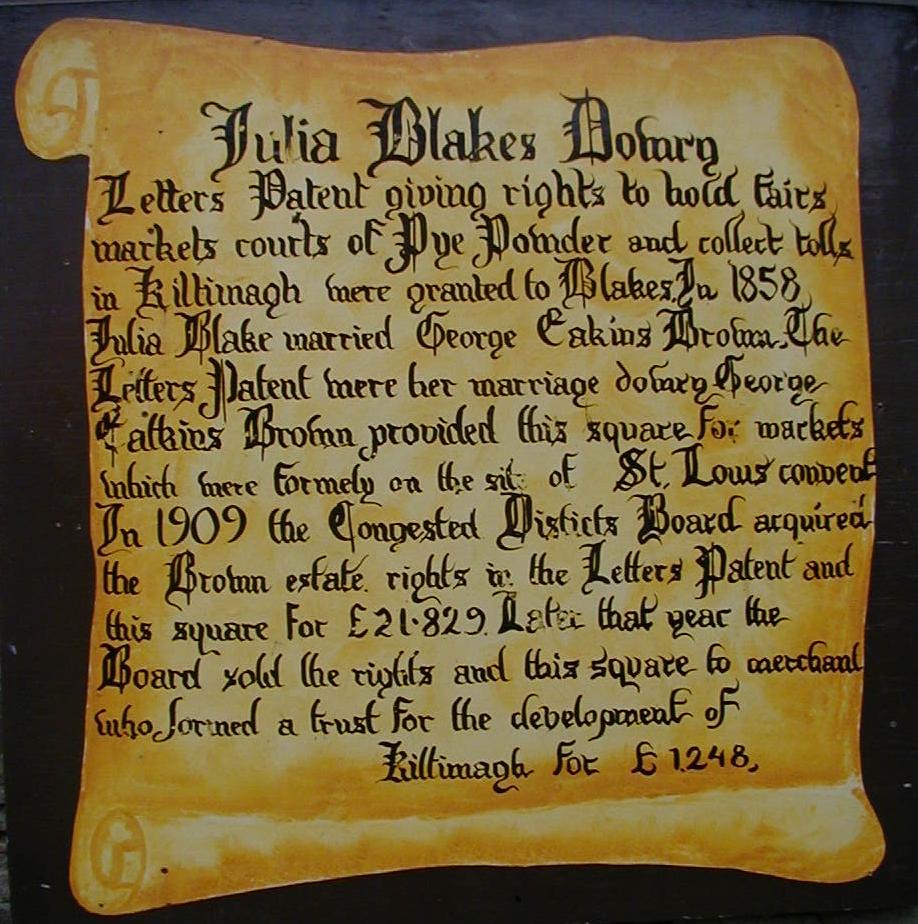 Julia Blakes Dowry
Letters Patent giving rights to hold fairs,
markets courts of Pye Powder and collect tolls,
in Kiltimagh were granted to Blakes. In 1858,
Julia Blake married George Eakins Brown. The
Letters Patent were her marriage dowry. George
Eatkins Brown provided this square for markets
which were formely on the site of St. Lous convent
In 1909 the Congested Disticts Board acquired
the Brown estate, rights in the Letters Patent and
this square for £21·829. Later that year the
Board sold the rights and this square to merchant
who formed a trust for the development of
Kiltimagh for £1.248,